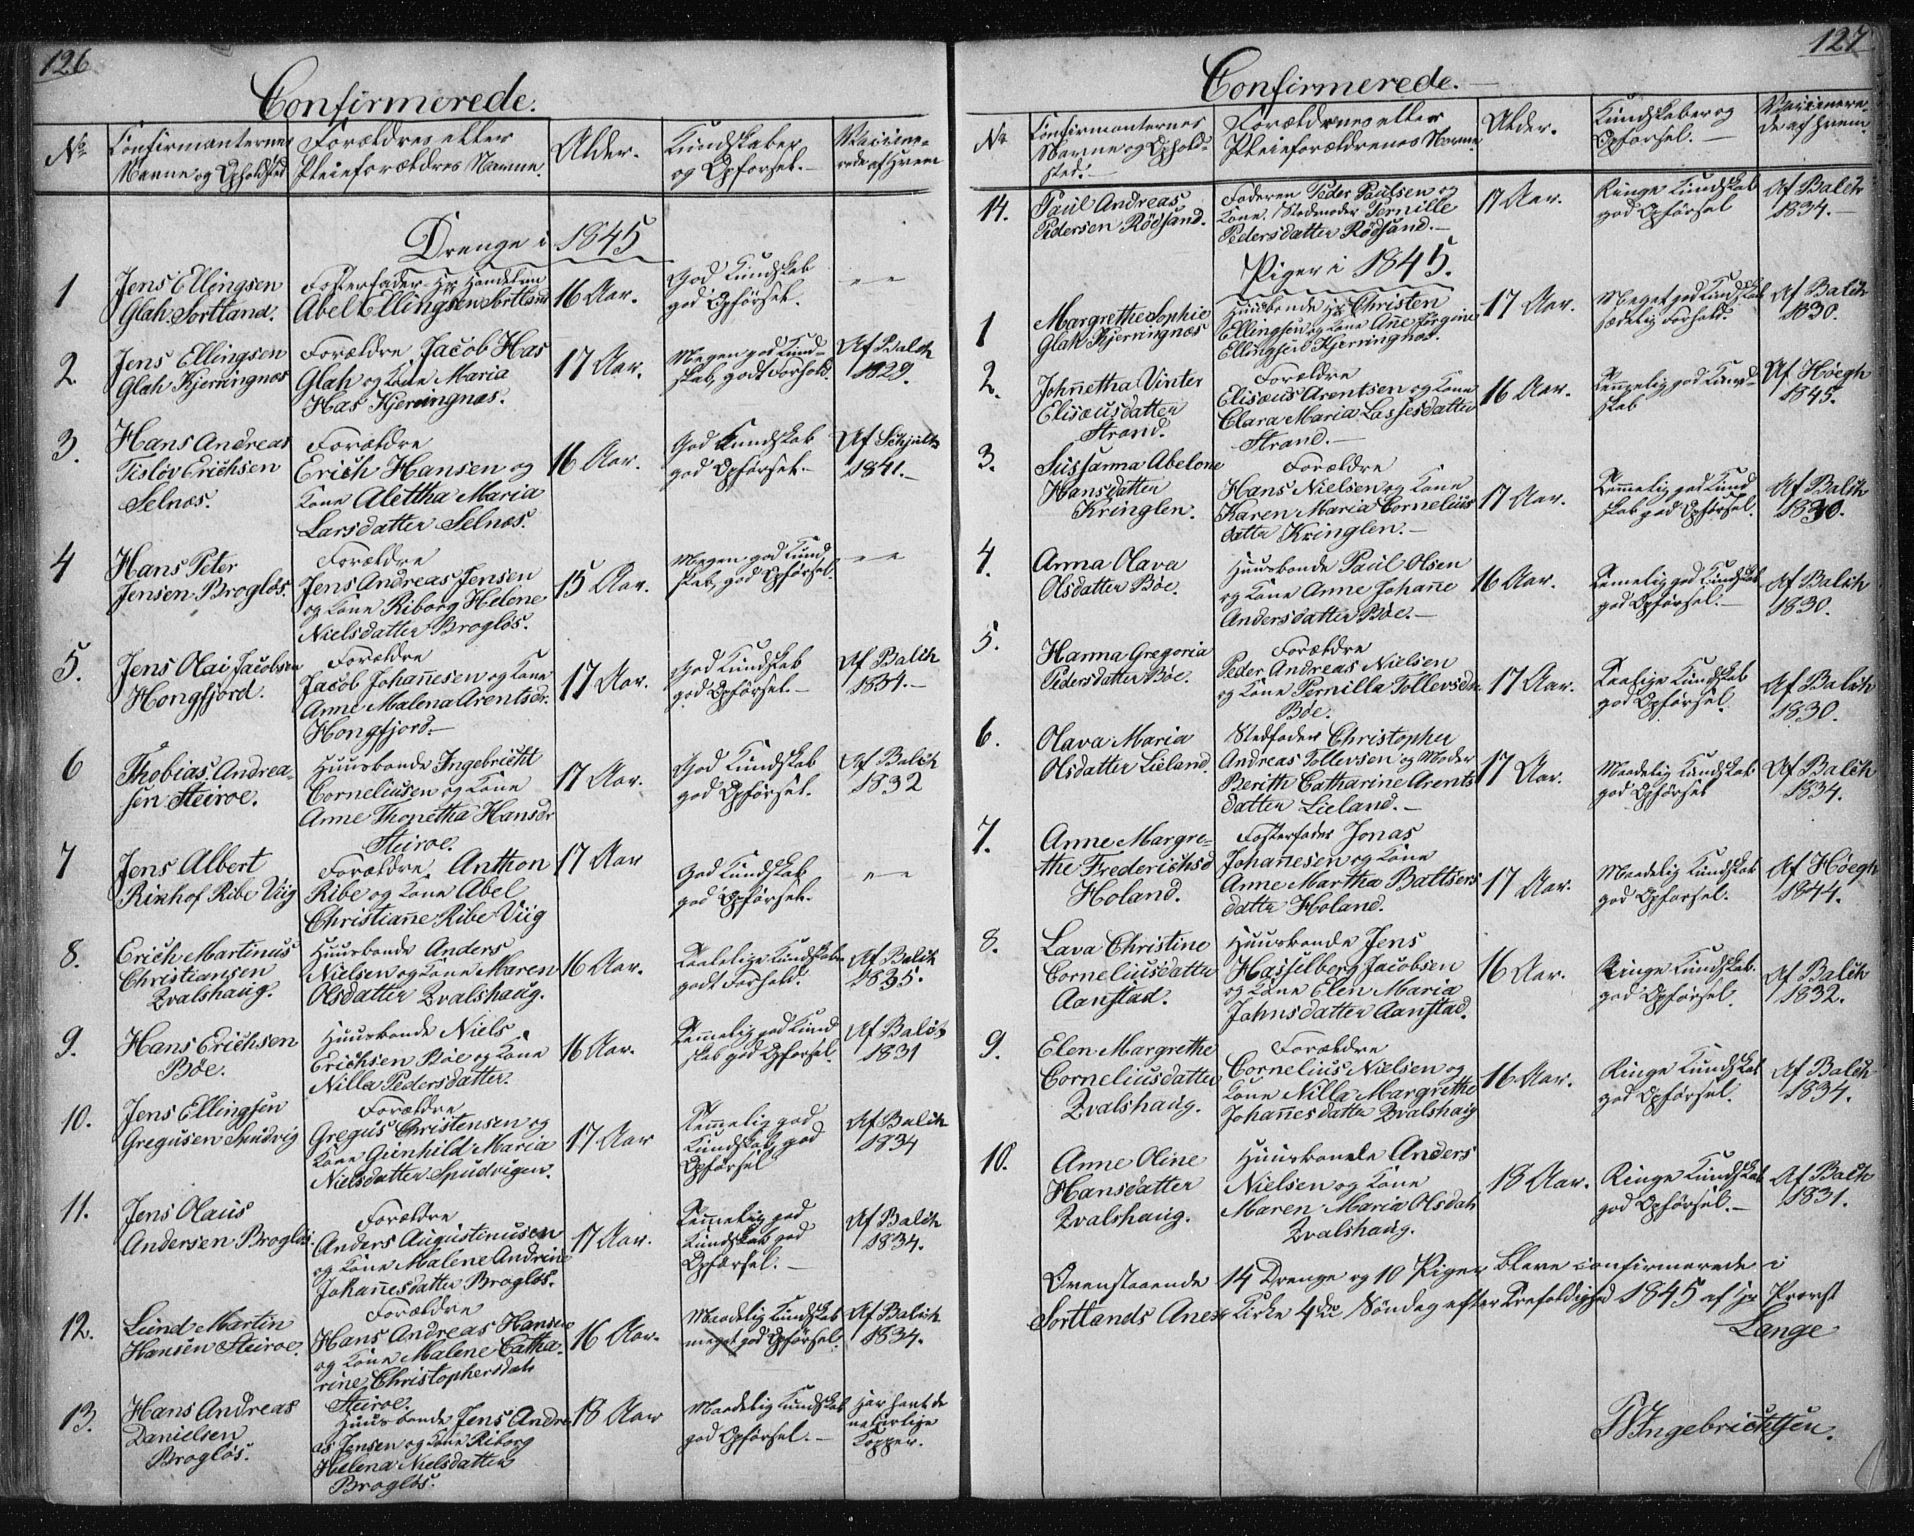 126
Confirmerede.
No
Confirmanternes
Navne og Opholdsted
Forældres eller
Pleieforældres Navne.
Alder.
Kundskaber
og Opførsel.
Vaccine-
rede af hvem
Drenge i 1845
1
Jens Ellingsen
Glah Sortland.
Fosterfader Hr Handelsm
Abel Ellingsen Sortland
16 Aar.
God Kundskab
god Opførsel.
— —
2
Jens Ellingsen
Glah Kjerringnæs
Forældre Jacob Has
Glah og Kone Maria
Has Kjerringnæs.
17 Aar.
Megen god Kund-
skab, godt Forhold.
Af Balch
1829.
3.
Hans Andreas
Tislöv Erichsen
Selnæs.
Forældre
Erich Hansen og
Kone Alettha Maria
Larsdatter Selnæs.
16 Aar.
God Kundskab
god Opførsel.
Af Schjelts
1841.
4
Hans Peter
Jensen Brogløs.
Forældre
Jens Andreas Jensen
og Kone Riborg Helene
Nielsdatter Brogløs.
15 Aar.
Megen god Kund
skab, god Opførsel.
— —
5.
Jens Olai Jacobsen
Hongfjord.
Forældre
Jacob Johannesen og Kone
Anne Malena Arentsdr.
Hongfjord.
17 Aar.
God Kundskab
god Opførsel.
Af Balch
1834.
6
Thobias Andrea-
sen Steiroe.
Huusbonde Ingebricht
Corneliusen og Kone
Anne Thonetha Hansdr
Steiroe.
17 Aar.
God Kundskab
god Opførsel.
Af Balch
1832
7
Jens Albert
Rinhof Ribe Viig
Forældre, Anthon
Ribe og Kone Abel
Christianne Ribe Viig
17 Aar
God Kundskab
god Opførsel.
— —
8.
Erich Martinus
Christiansen
Kvalshaug.
Huusbonde Anders
Nielsen og Kone Maren
Olsdatter Kvalshaug.
16 Aar.
Taalelige Kundskaber
godt Forhold.
Af Balch
1835.
9.
Hans Erichsen
Böe.
Huusbonde Niels
Erichsen Böe og Kone
Nilla Pedersdatter.
16 Aar.
Temmelig god Kund
skab god Opførsel.
Af Balch
1831
10.
Jens Ellingsen
Gregusen Smidvig
Forældre
Gregus Christensen og
Kone Gunhild Maria
Nielsdatter Spudvigen.
17 Aar
Temmelig god
Kundskab, god
Opførsel
Af Balch
1834
11.
Jens Olaus
Andersen Brogløs.
Forældre
Anders Augustinusen
og Kone Malene Andrine
Johannesdatter Brogløs.
17 Aar.
Temmelig god
Kundskab god
Opførsel.
Af Balch
1834.
12.
Lund Martin
Hansen Steiroe.
Forældre
Hans Andreas Hansen
og Kone Malene Catha-
rine Christophersdatr
Steiroe.
16 Aar.
Maadelig Kundskab
meget god Opførsel.
Af Balch
1834.
13.
Hans Andreas
Danielsen
Brogløs.
Huusbonde Jens Andre-
as Jensen og Kone Riborg
Helena Nielsdatter
Brogløs.
18 Aar
Maadelig Kundskab
god Opførsel.
Har havt de
naturlige
Kopper.
127
Confirmerede.
No
Confirmanternes
Navne og Ophold-
sted.
Forældrenes eller
Pleieforældrenes Navne.
Alder.
Kundskaber og
Opførsel.
Vaccinere-
de af hvem.
14.
Paul Andreas
Pedersen Rödsand.
Faderen Peder Paulsen og
Kone, Stedmoder Pernille
Pedersdatter Rödsand.
17 Aar.
Ringe Kundskab
god Opførsel
Af Balch
1834.
Piger i 1845.
1
Margrethe Sophie
Glah Kjerringnæs
Huusbonde Hr Christen
Ellingsen og Kone Ane Jörgine
Ellingsen Kjerringnæs.
17 Aar.
Meget god Kundskab
sædelig Forhold.
Af Balch
1830.
2.
Johnetha Vinter
Elisæusdatter
Strand.
Forældre
Elisæus Arentsen og Kone
Clara Maria Lassesdatter
Strand.
16 Aar.
Temmelig god Kund-
skab
Af Høegh
1845.
3.
Sussanna Abelone
Hansdatter
Kringlen.
Forældre
Hans Nielsen og Kone
Karen Maria Cornelius
datter Kringlen.
17 Aar.
Temmelig god Kund
skab god Opførsel.
Af Balch
1830.
4.
Anna Olava
Olsdatter Böe.
Huusbonde Paul Olsen
og Kone Anne Johanne
Andersdatter Böe.
16 Aar.
Temelig god Kundskab
god Opførsel.
Af Balch
1830.
5.
Hanna Gregoria
Pedersdatter Böe.
Forældre
Peder Andreas Nielsen
og Kone Pernilla Tollevsdr.
Böe.
17 Aar.
Taalige Kundskab
god Opførsel.
Af Balch
1830.
6.
Olava Maria
Olsdatter Lieland.
Stedfader Christopher
Andreas Tollevsen og Moder
Berith Catharine Arents
datter Lieland.
17 Aar.
Maadelig Kundskab
god Opførsel
Af Balch
1834.
7.
Anne Margre-
the Frederichsd
Holand.
Fosterfader Jonas
Johannesen og Kone
Anne Martha Baltsers
datter Holand.
17 Aar.
Maadelig Kundskab
god Opførsel.
Af Høegh
1844.
8.
Lava Christine
Corneliusdatter
Aanstad.
Huusbonde Jens
Hasselberg Jacobsen
og Kone Elen Maria
Johnsdatter Aanstad.
16 Aar.
Ringe Kundskab
god Opførsel.
Af Balch
1832.
9.
Elen Margrethe
Corneliusdatter
Kvalshaug.
Forældre
Cornelius Nielsen og
Kone Nilla Margrethe
Johannesdatter Kvalshaug
16 Aar.
Ringe Kundskab
god Opførsel.
Af Balch
1834.
10.
Anne Oline
Hansdatter
Kvalshaug.
Huusbonde Anders
Nielsen og Kone
Maren Maria Olsdatr
Kvalshaug.
18 Aar.
Ringe Kundskab
god Opførsel.
Af Balch
1831.
Ovenstaaende 14 Drenge og 10 Piger bleve confirmerede i
Sortlands Anex Kirke 4de Søndag efter Trefoldighed 1845 af hr Provst
Lange
Ingebrichtsen.